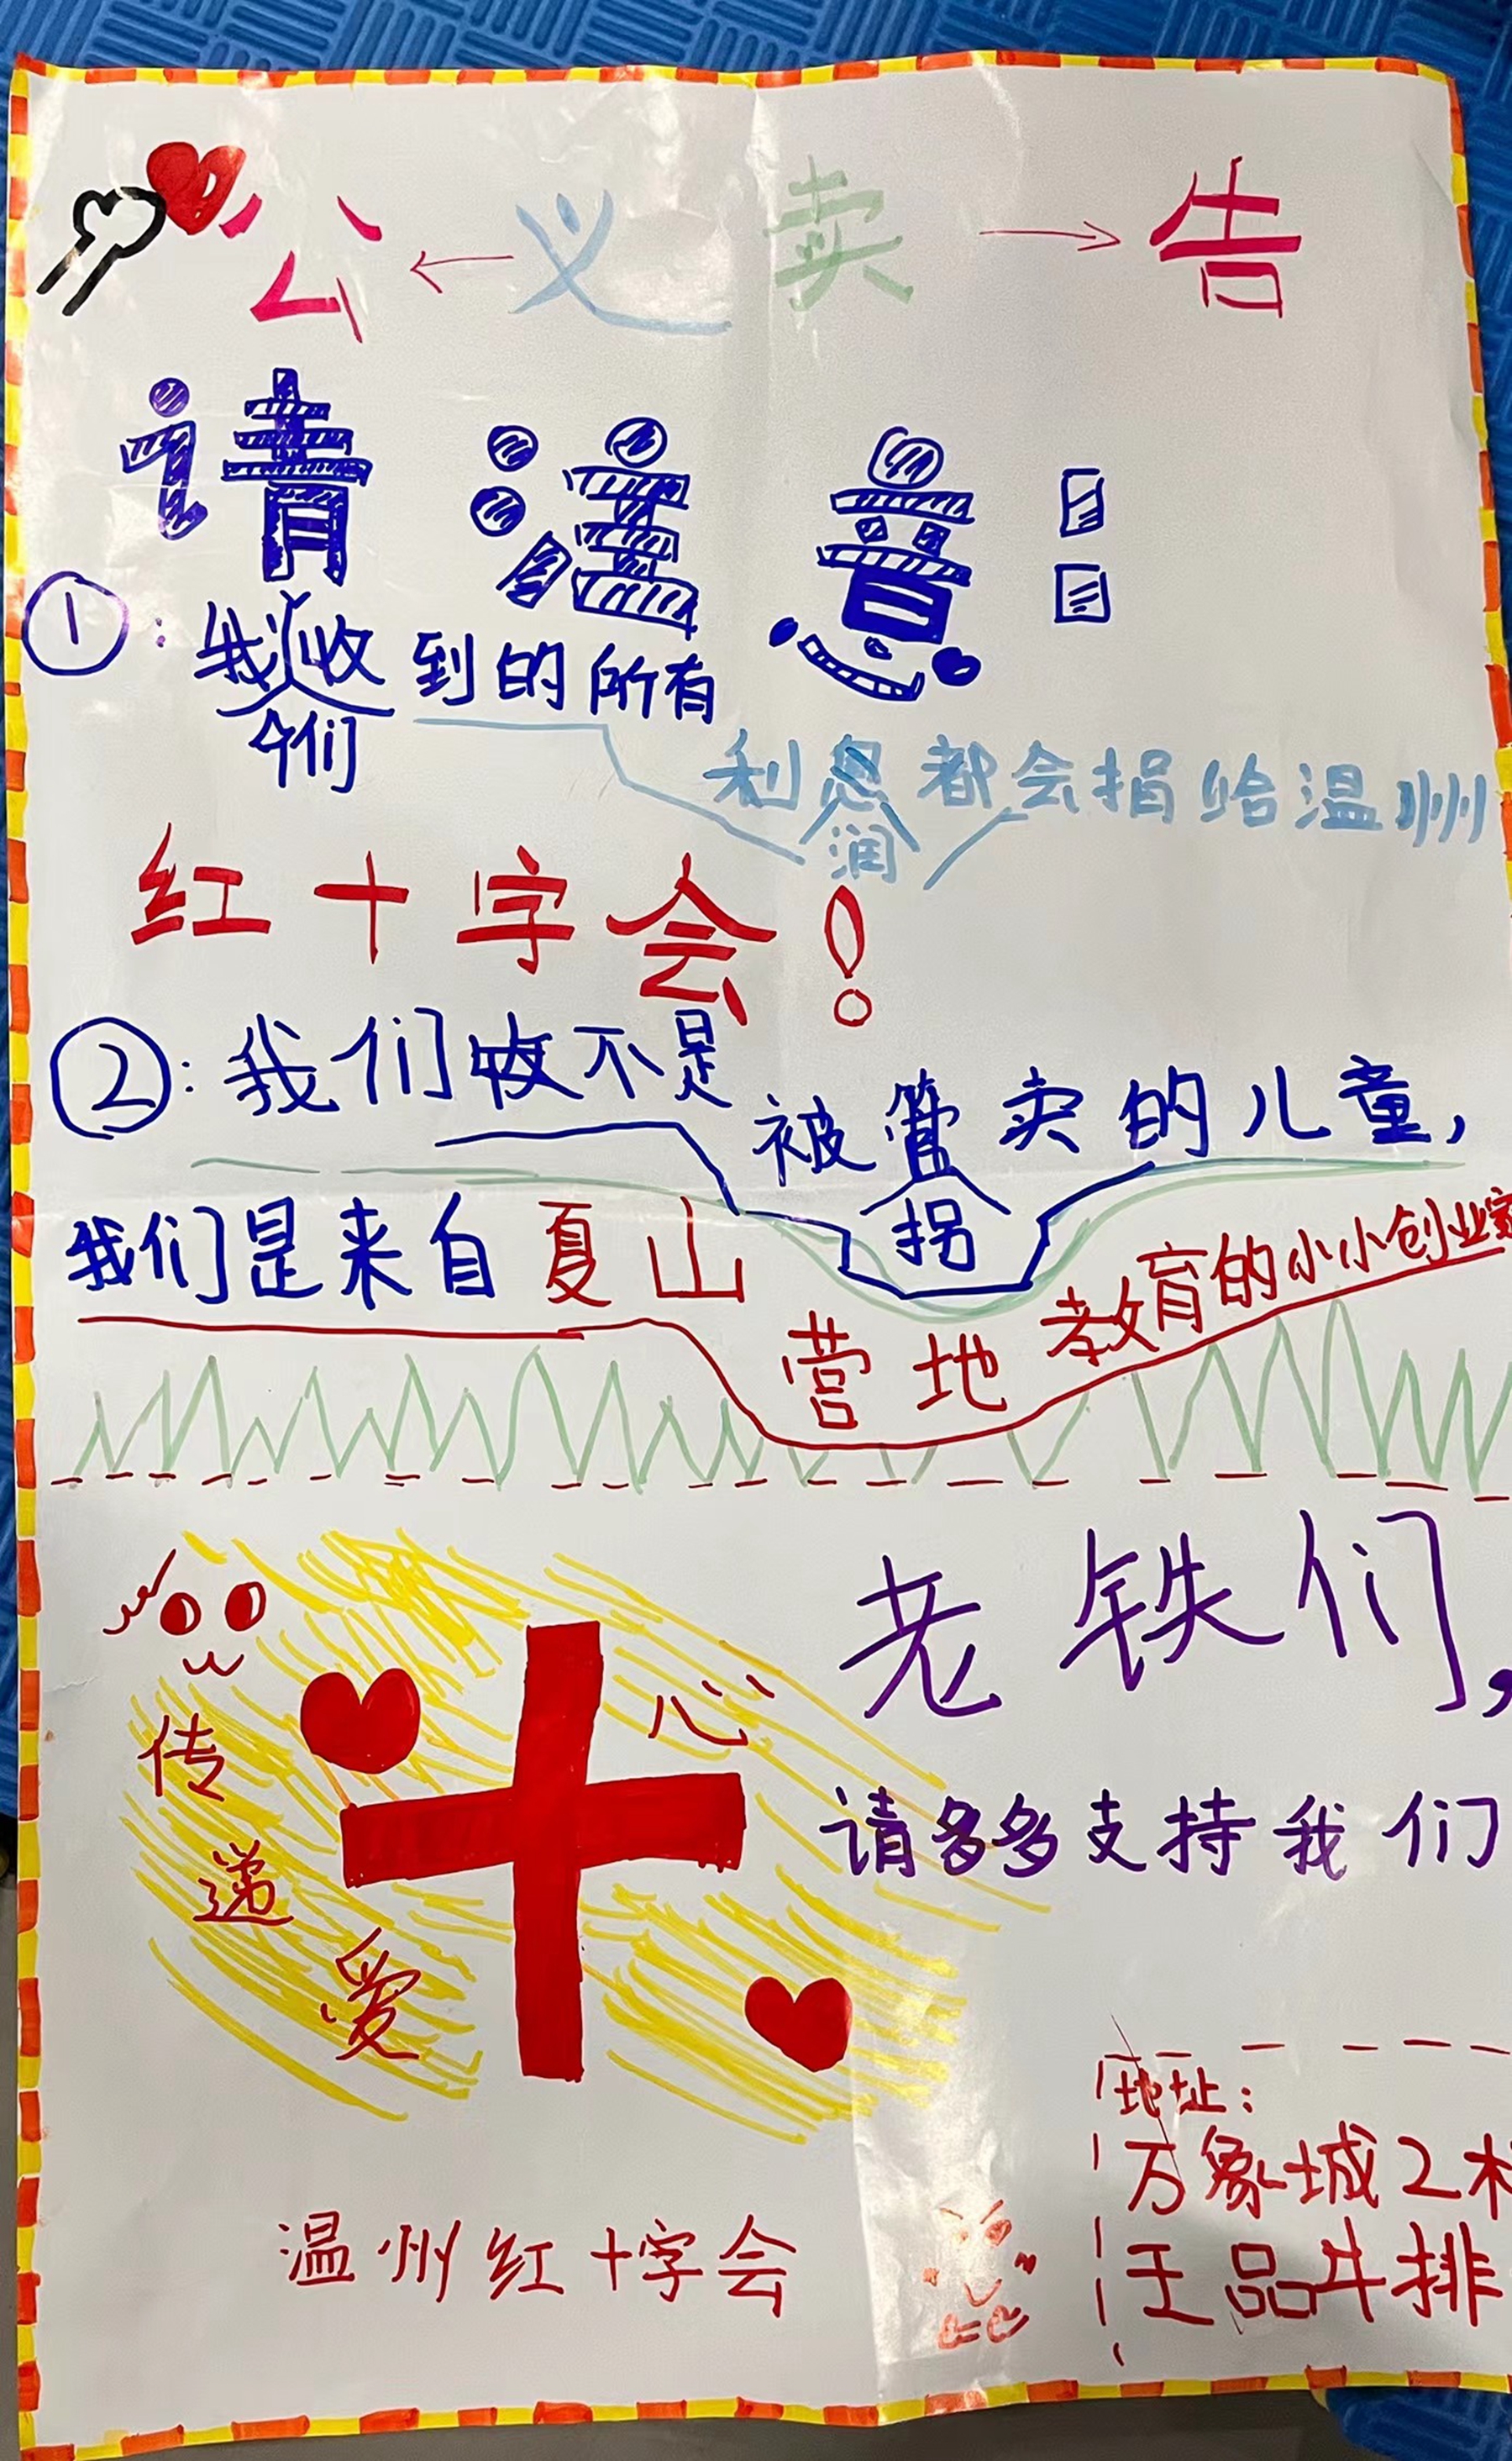 公←义卖→告
请注意:
①:我们今收到的所有
利息润都会捐给温州
红十字会!
②:我们不是
被管拐卖的儿童,
我们是来自夏山
营地教育的小小创业家
老铁们,
请多多支持我们
传递爱心
地址:
万象城2
王品牛排
温州红十字会